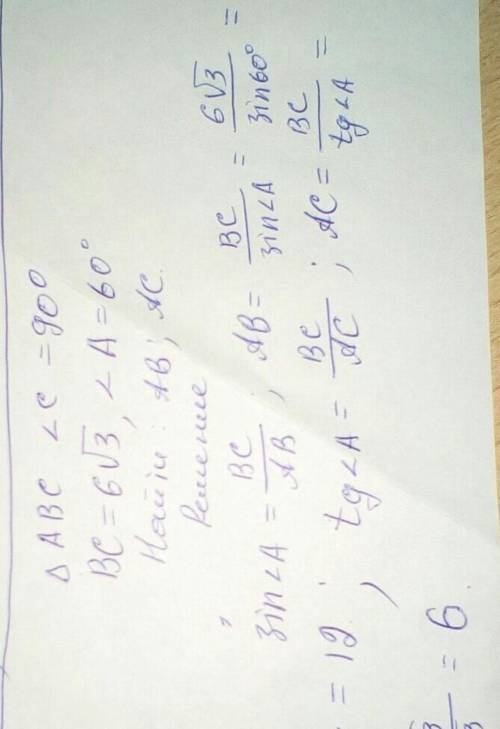 △ ABC ∠C = 90°
BC = 6√3, ∠A = 60°
Найти: AB; AC.
Решение
sin∠A = BC/AB, AB = BC/sin∠A = 6√3/sin60° =
= 12; tg∠A = BC/AC; AC = BC/tg∠A =
= 6